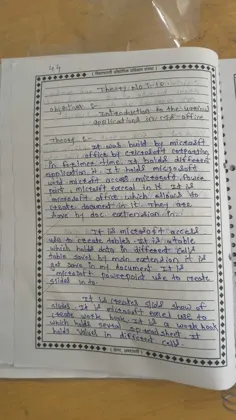 44
Theory No. 1-10
objective :-
Introduction to the various
application in MS-office
Theory :-
It was build by microsoft
office by microsoft corporation
In holds different
application it. It holds microsoft
word microsoft access microsoft power
point, microsoft excel in it. It is
microsoft office which allows to
create document in it. They are
save by doc extension in.
It is microsoft access
use to create tables. It is a table
which holds data in different cells
table save by main extension it is
get save in my document. It is
microsoft powerpoint use to create
slides into
It is creates slide show of
slides. It is microsoft excel use to
create work book. It is a work book
which holds several spreadsheet it
holds value in different cell.